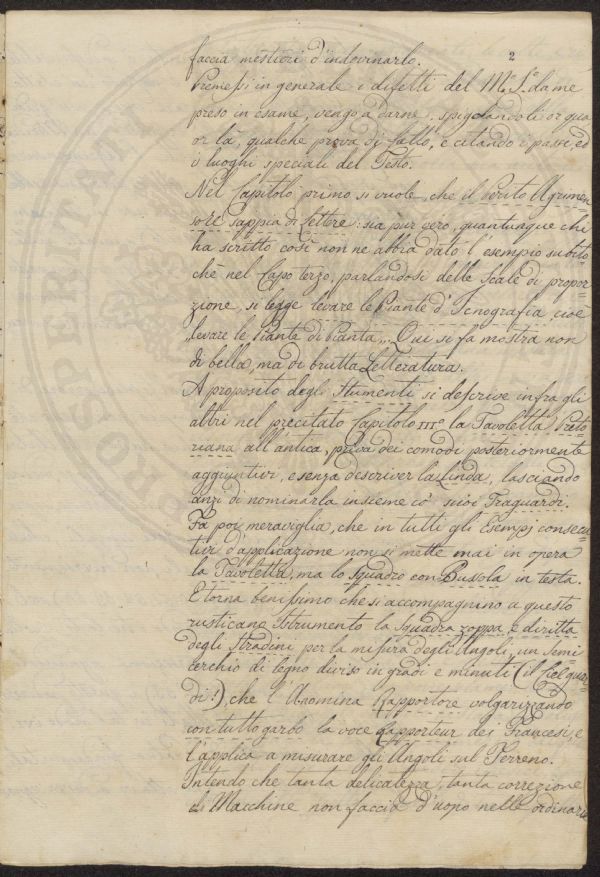 2
faccia mestieri d'indovinarlo.
Premessi in generale i difetti del M.o S.o da me
preso in esame, vengo a darne, spigolandoli or qua
or là, qualche prova di fallo, e citando i passi, ed
i luoghi speciali del Testo.
Nel Capitolo primo si vuole, che il Perito Agrimen=
sore sappia di Lettere: sia pur vero, quantunque chi
ha scritto così non ne abbia dato l'esempio subito=
chè nel Capo terzo, parlandosi delle Scale di propor=
zione, si legge levare le Piante d'Icnografia, cioè
levare le Piante di Pianta,,. Qui si fa mostra non
di bella, ma di brutta Letteratura.
A proposito degli Stumenti si descrive infra gli
altri nel precitato Capitolo III.o la Tavoletta Preto=
riana all'antica, priva dei comodi posteriormente
aggiuntivi, e senza descriver la Linda, lasciando
anzi di nominarla insieme co' suoi Traguardi.
Fa poi meraviglia, che in tutti gli Esempj consecu=
tivi d'applicazione non si mette mai in opera
la Tavoletta, ma lo Squadro con Bussola in testa.
E torna benissimo che si accompagnino a questo
rusticano Istrumento la Squadra zoppa e diritta
degli Stradini per la misura degli Angoli, un Semi
cerchio di legno diviso in gradi e minuti (il Ciel guar=
di!), che l'Anomina Rapportore volgarizzando
con tutto garbo la voce Rapporteur dei Francesi, e
l'applica a misurare gli Angoli sul Terreno.
Intendo che tanta delicatezza, tanta correzione
di Macchine non faccia d'uopo nelle ordinarie